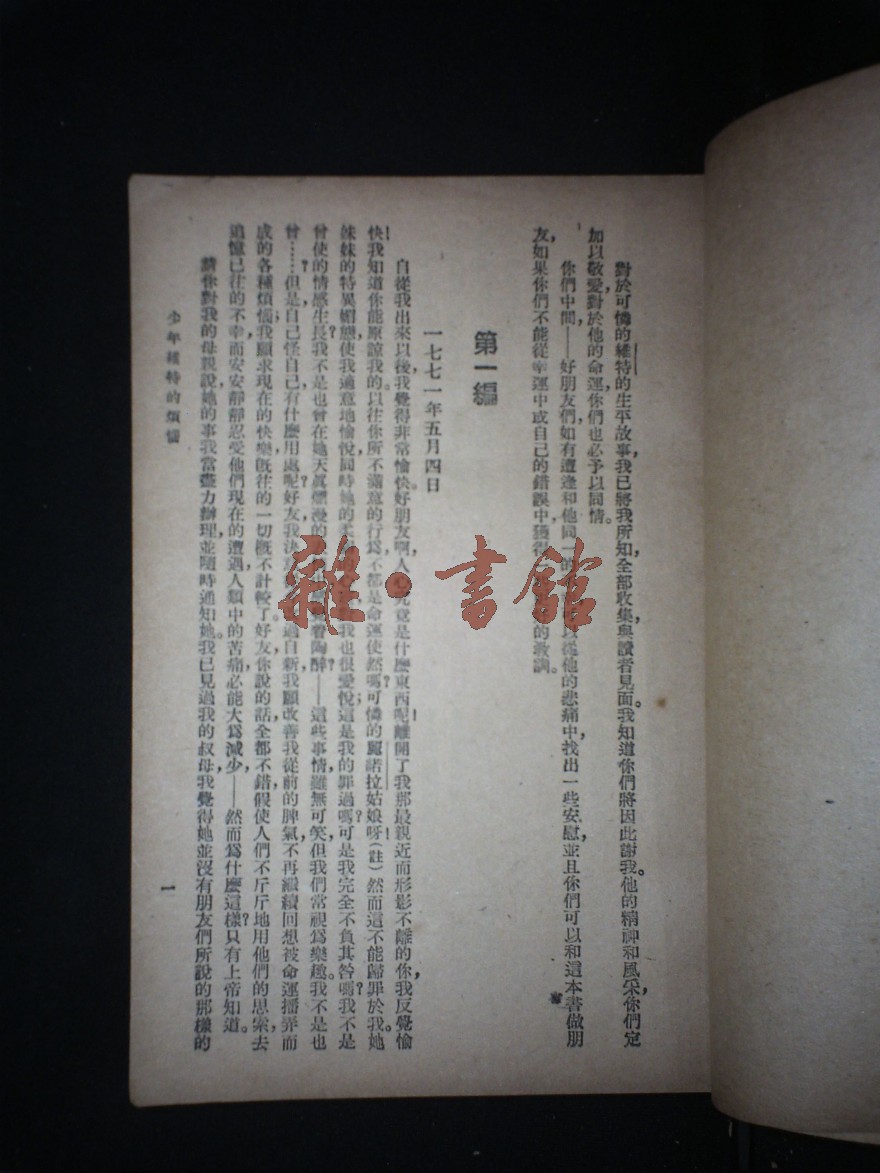 對於可憐的維特的生平故事，我已將我所知全部收集，與讀者見面。我知道你們將因此謝我。他的精神和風采，你們定
加以敬愛，對於他的命運，你們也必予以同情。
你們中間——好朋友們，如有遭逢和他同一的 他的悲痛中，找出一些安慰，並且你們可以和這本書做朋
友，如果你們不能從幸運中或自己的錯誤中，獲得 的教訓。
第一編
一七七一年五月四日
自從我出來以後，我覺得非常愉快。好朋友啊，人心究竟是什麼東西呢！離開了我那最親近而形影不離的你，我反覺愉
快！我知道你能原諒我的。以往你所不滿意的行爲，不都是命運使然嗎？可憐的麗諾拉姑娘呀！（註）然而這不能歸罪於我。她
妹妹的特異媚態，使我適意地愉悅，同時她的柔 我也很愛悅；這是我的罪過嗎？可是我完全不負其咎嗎？我不是
曾使的情感生長？我不是也曾在她天眞爛漫的 着陶醉？——這些事情，雖無可笑，但我們常視爲樂趣。我不是也
曾……？但是，自己怪自己，有什麼用處呢？好友，我決 過自新，我願改善我從前的脾氣，不再繼續回想被命運播弄而
成的各種煩惱；我願求現在的快樂，旣往的一切，概不計較了。好友，你說的話，全都不錯，假使人們不斤斤地用他們的思索，去
追憶已往的不幸，而安安靜靜忍受他們現在的遭遇，人類中的苦痛，必能大爲減少——然而爲什麼這樣？只有上帝知道。
請你對我的母親說，她的事，我當盡力辦理，並隨時通知她。我已見過我的叔母，我覺得她並沒有朋友們所說的那樣的
少年維特的煩惱
一
雜·書館